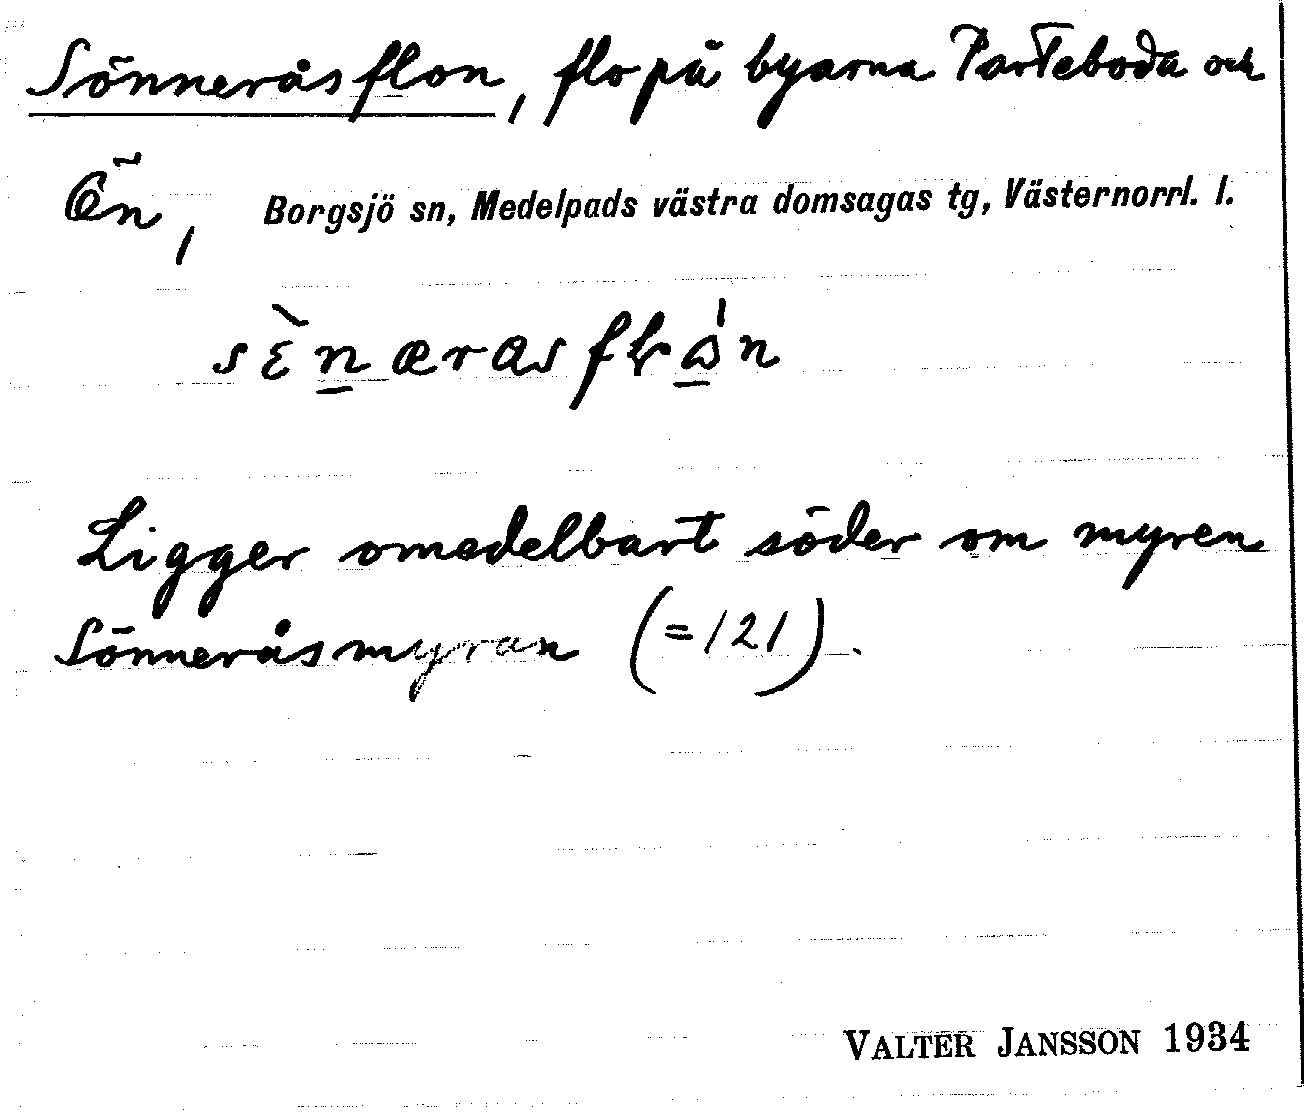 Sönneråsflon, flo på byarna Parteboda och
Ön, Borgsjö sn, Medelpads västra domsagas tg, Västernorrl. l.
Ligger omedelbart söder om myren
Sönneråsmyran (=121).
VALTER JANSSON 1934